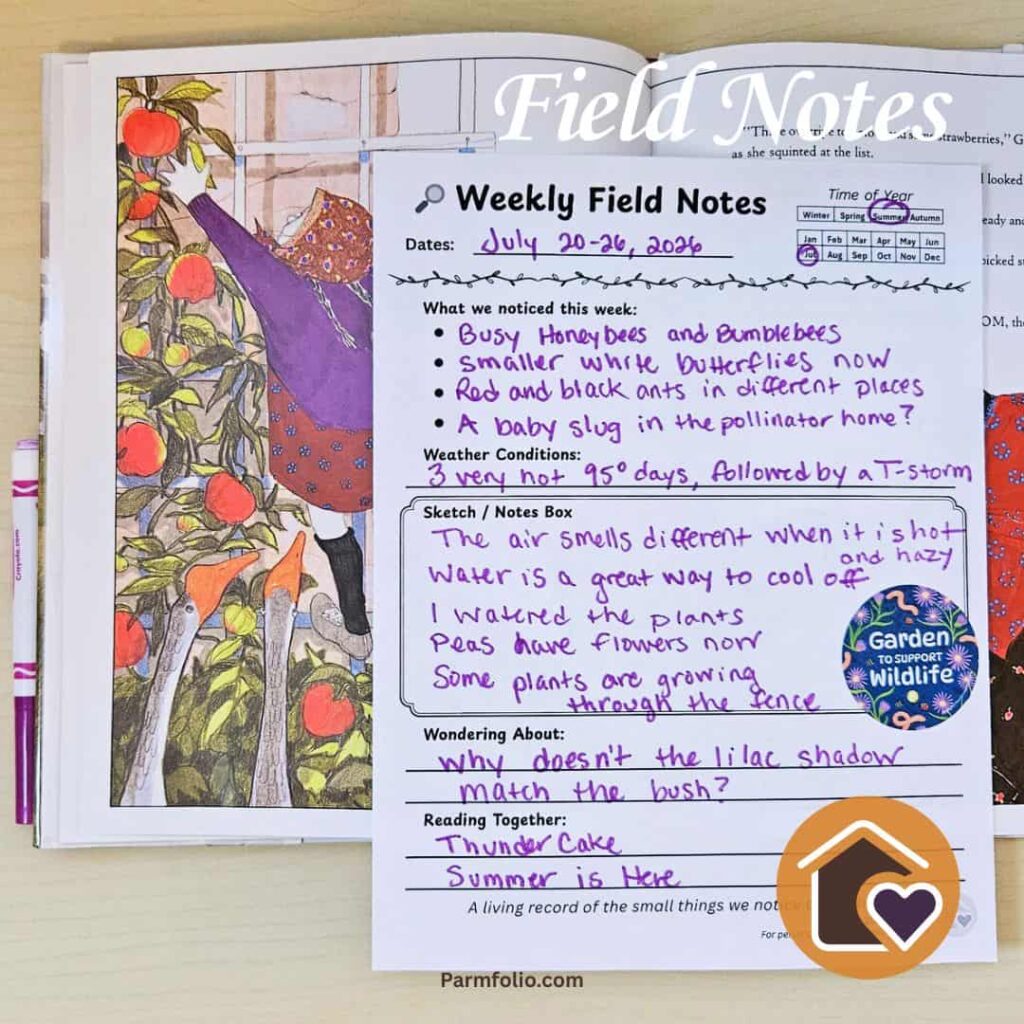 Field Notes
strawberries," G
as she squinted at the list.
looked
eady and
picked
OM, the
Weekly Field Notes
Time of Year
Winter Spring Summer Autumn
Jan Feb Mar Apr May Jun
Jul Aug Sep Oct Nov Dec
Dates: July 20-26, 2026
What we noticed this week:
• Busy Honeybees and Bumblebees
• smaller white butterflies now
• Red and black ants in different places
• A baby slug in the pollinator home?
Weather Conditions:
3 very hot 95° days, followed by a T-storm
Sketch / Notes Box
The air smells different when it is hot
and hazy
Water is a great way to cool off
I watered the plants
Peas have flowers now
Some plants are growing
through the fence
Garden
to support
Wildlife
Wondering About:
Why doesn't the lilac shadow
match the bush?
Reading Together:
Thunder Cake
Summer is Here
A living record of the small things we
For
Parmfolio.com
Crayola.com